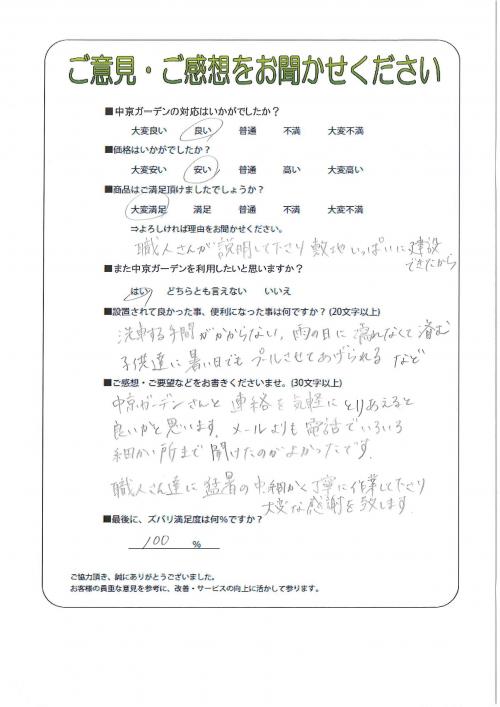 ご意見・ご感想をお聞かせください
■中京ガーデンの対応はいかがでしたか？
大変良い 良い 普通 不満 大変不満
■価格はいかがでしたか？
大変安い 安い 普通 高い 大変高い
■商品はご満足頂けましたでしょうか？
大変満足 満足 普通 不満 大変不満
⇒よろしければ理由をお聞かせください。
職人さんが説明して下さり敷地いっぱいに建設
できたから
■また中京ガーデンを利用したいと思いますか？
はい どちらとも言えない いいえ
■設置されて良かった事、便利になった事は何ですか？(20文字以上)
洗車する手間がかからない、雨の日に濡れなくて済む
子供達に暑い日でもプールさせてあげられる など
■ご感想・ご要望などをお書きくださいませ。(30文字以上)
中京ガーデンさんと連絡を気軽にとりあえると
良いかと思います。メールよりも電話でいろいろ
細かい所まで聞けたのがよかったです。
職人さん達に猛暑の中細かく丁寧に作業して下さり
大変な感謝を致します。
■最後に、ズバリ満足度は何％ですか？
100 ％
ご協力頂き、誠にありがとうございました。
お客様の貴重な意見を参考に、改善・サービスの向上に活かして参ります。